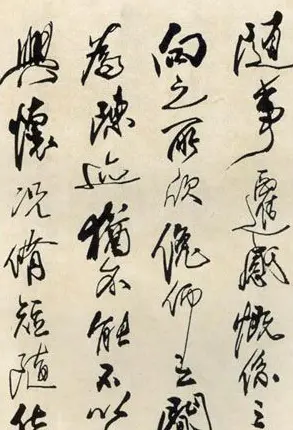 随事遷感慨係之
向之所欣俛仰之間
為陳迹猶不能不以
興懷況脩短隨化